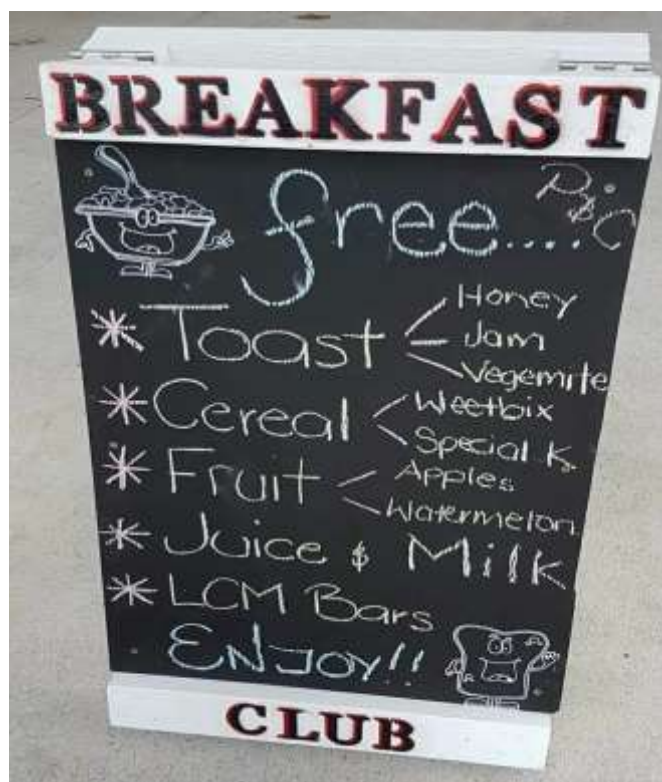 BREAKFAST
free.... P & C
* Toast
Honey
Jam
Vegemite
* Cereal
Weetbix
Special K
* Fruit
Apples
Watermelon
* Juice & Milk
* LCM Bars
ENJOY!!
CLUB